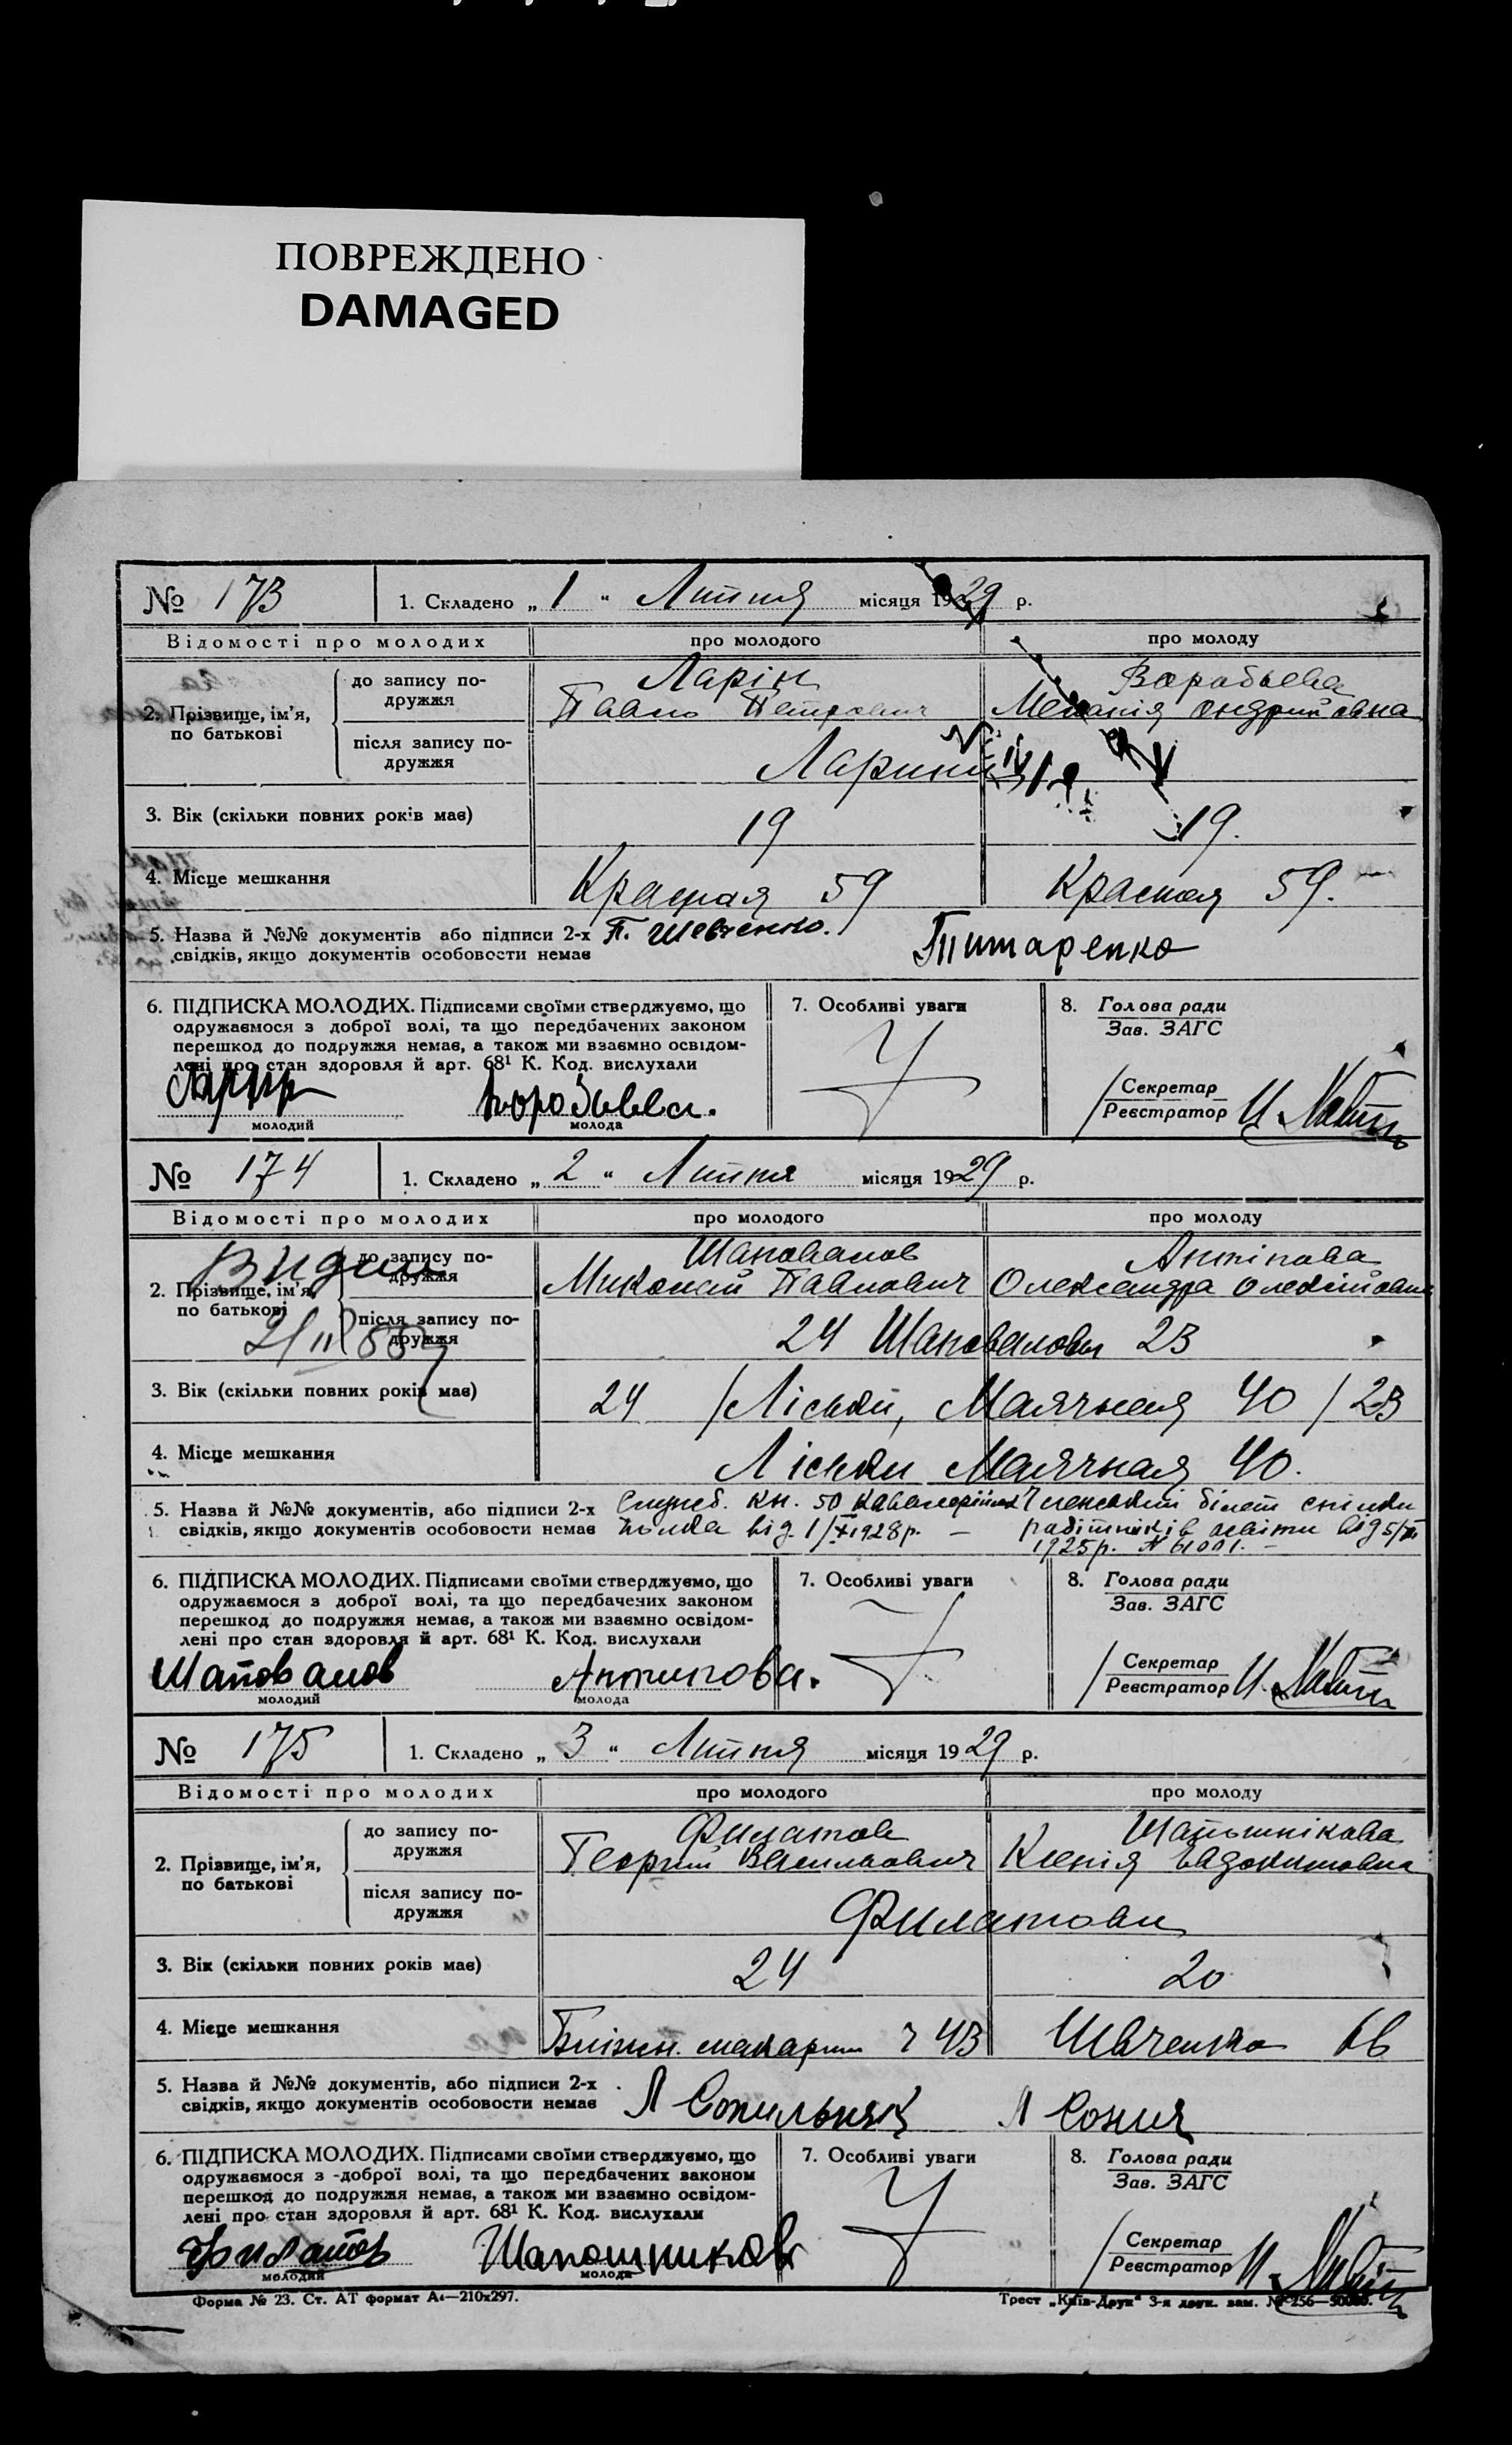 ПОВРЕЖДЕНО
DAMAGED
№ 173 1. Складено „ 1 “ Липня місяця 1929 р.
Відомості про молодих про молодого про молоду
2. Прізвище, ім’я, по батькові
до запису подружжя
Ларін Воробьева
Павло Петрович Меланія Андриївна
після запису по-
дружжя
Ларини
3. Вік (скільки повних років має) 19 19.
4. Місце мешкання Красная 59 Красная 59.
5. Назва й №№ документів або підписи 2-х П. Шевченко. Титаренко
свідків, якщо документів особовости немає
6. ПІДПИСКА МОЛОДИХ. Підписами своїми стверджуємо, що 7. Особливі уваги 8. Голова ради
одружаємося з доброї волі, та що передбачених законом Зав. ЗАГС
перешкод до подружжя немає, а також ми взаємно освідом-
лені про стан здоровля й арт. 68¹ К. Код. вислухали
Секретар
Реєстратор
Ларин Воробьева.
молодий молода
№ 174 1. Складено „ 2 “ Липня місяця 1929 р.
Відомості про молодих про молодого про молоду
2. Прізвище, ім’я, по батькові
до запису по-
дружжя
Шаповалов Антіпова
Миколай Павлович Олександра Олексіївна
після запису по-
дружжя
24 Шаповалови 23
3. Вік (скільки повних років має) 24 /Ліски, Маячная 40 / 23
4. Місце мешкання Ліски Маячная 40.
5. Назва й №№ документів, або підписи 2-х Служб. кн. 50 Членський білет спілки
свідків, якщо документів особовости немає полка від 1/X 1928р. – робітників освіти від 5/
1925р. № 61001. –
6. ПІДПИСКА МОЛОДИХ. Підписами своїми стверджуємо, що 7. Особливі уваги 8. Голова ради
одружаємося з доброї волі, та що передбачених законом Зав. ЗАГС
перешкод до подружжя немає, а також ми взаємно освідом-
лені про стан здоровля й арт. 68¹ К. Код. вислухали
Секретар
Реєстратор
Шаповалов Антипова.
молодий молода
№ 175 1. Складено „ 3 “ Липня місяця 1929 р.
Відомості про молодих про молодого про молоду
2. Прізвище, ім’я, по батькові
до запису по-
дружжя
Филатов Шапошнікова
Георгий Васильович Ксенія Евдокимовна
після запису по-
дружжя
Филатови
3. Вік (скільки повних років має) 24 20
4. Місце мешкання 43 Шевченка 66
5. Назва й №№ документів, або підписи 2-х
свідків, якщо документів особовости немає
6. ПІДПИСКА МОЛОДИХ. Підписами своїми стверджуємо, що 7. Особливі уваги 8. Голова ради
одружаємося з доброї волі, та що передбачених законом Зав. ЗАГС
перешкод до подружжя немає, а також ми взаємно освідом-
лені про стан здоровля й арт. 68¹ К. Код. вислухали
Секретар
Реєстратор
Филатов Шапошников
молодий молода
Форма № 23. Ст. АТ формат А₄—210х297. Трест „Київ-Друк“ 3-я друк. зам. № 256—50000.